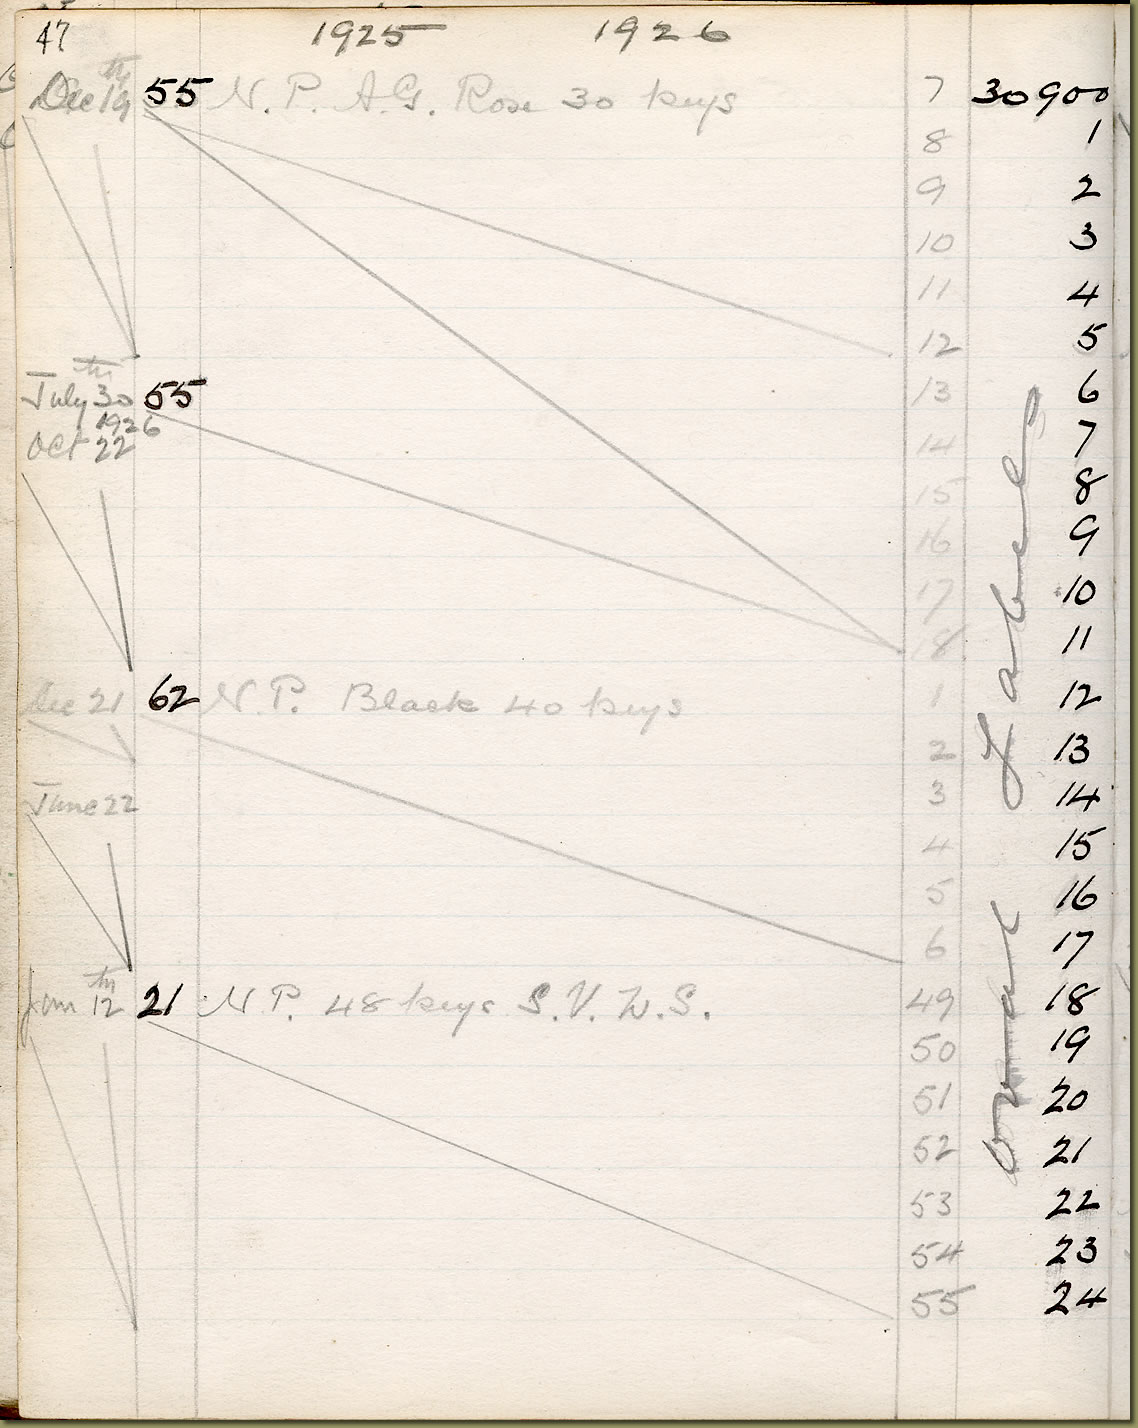 47 1925 1926
Dec 19th 55 N. P. A.G. Rose 30 keys 7 30900
8 1
9 2
10 3
11 4
12 5
July 30th 55 13 6
1926
Oct 22 14 7
15 8
16 9
17 10
18 11
Dec 21 62 N. P. Black 40 keys 1 12
2 13
June 22 3 14
4 15
5 16
6 17
Jan 12th 21 N P. 48 keys S. V. W. S. 49 18
50 19
51 20
52 21
53 22
54 23
55 24
Oval Labels